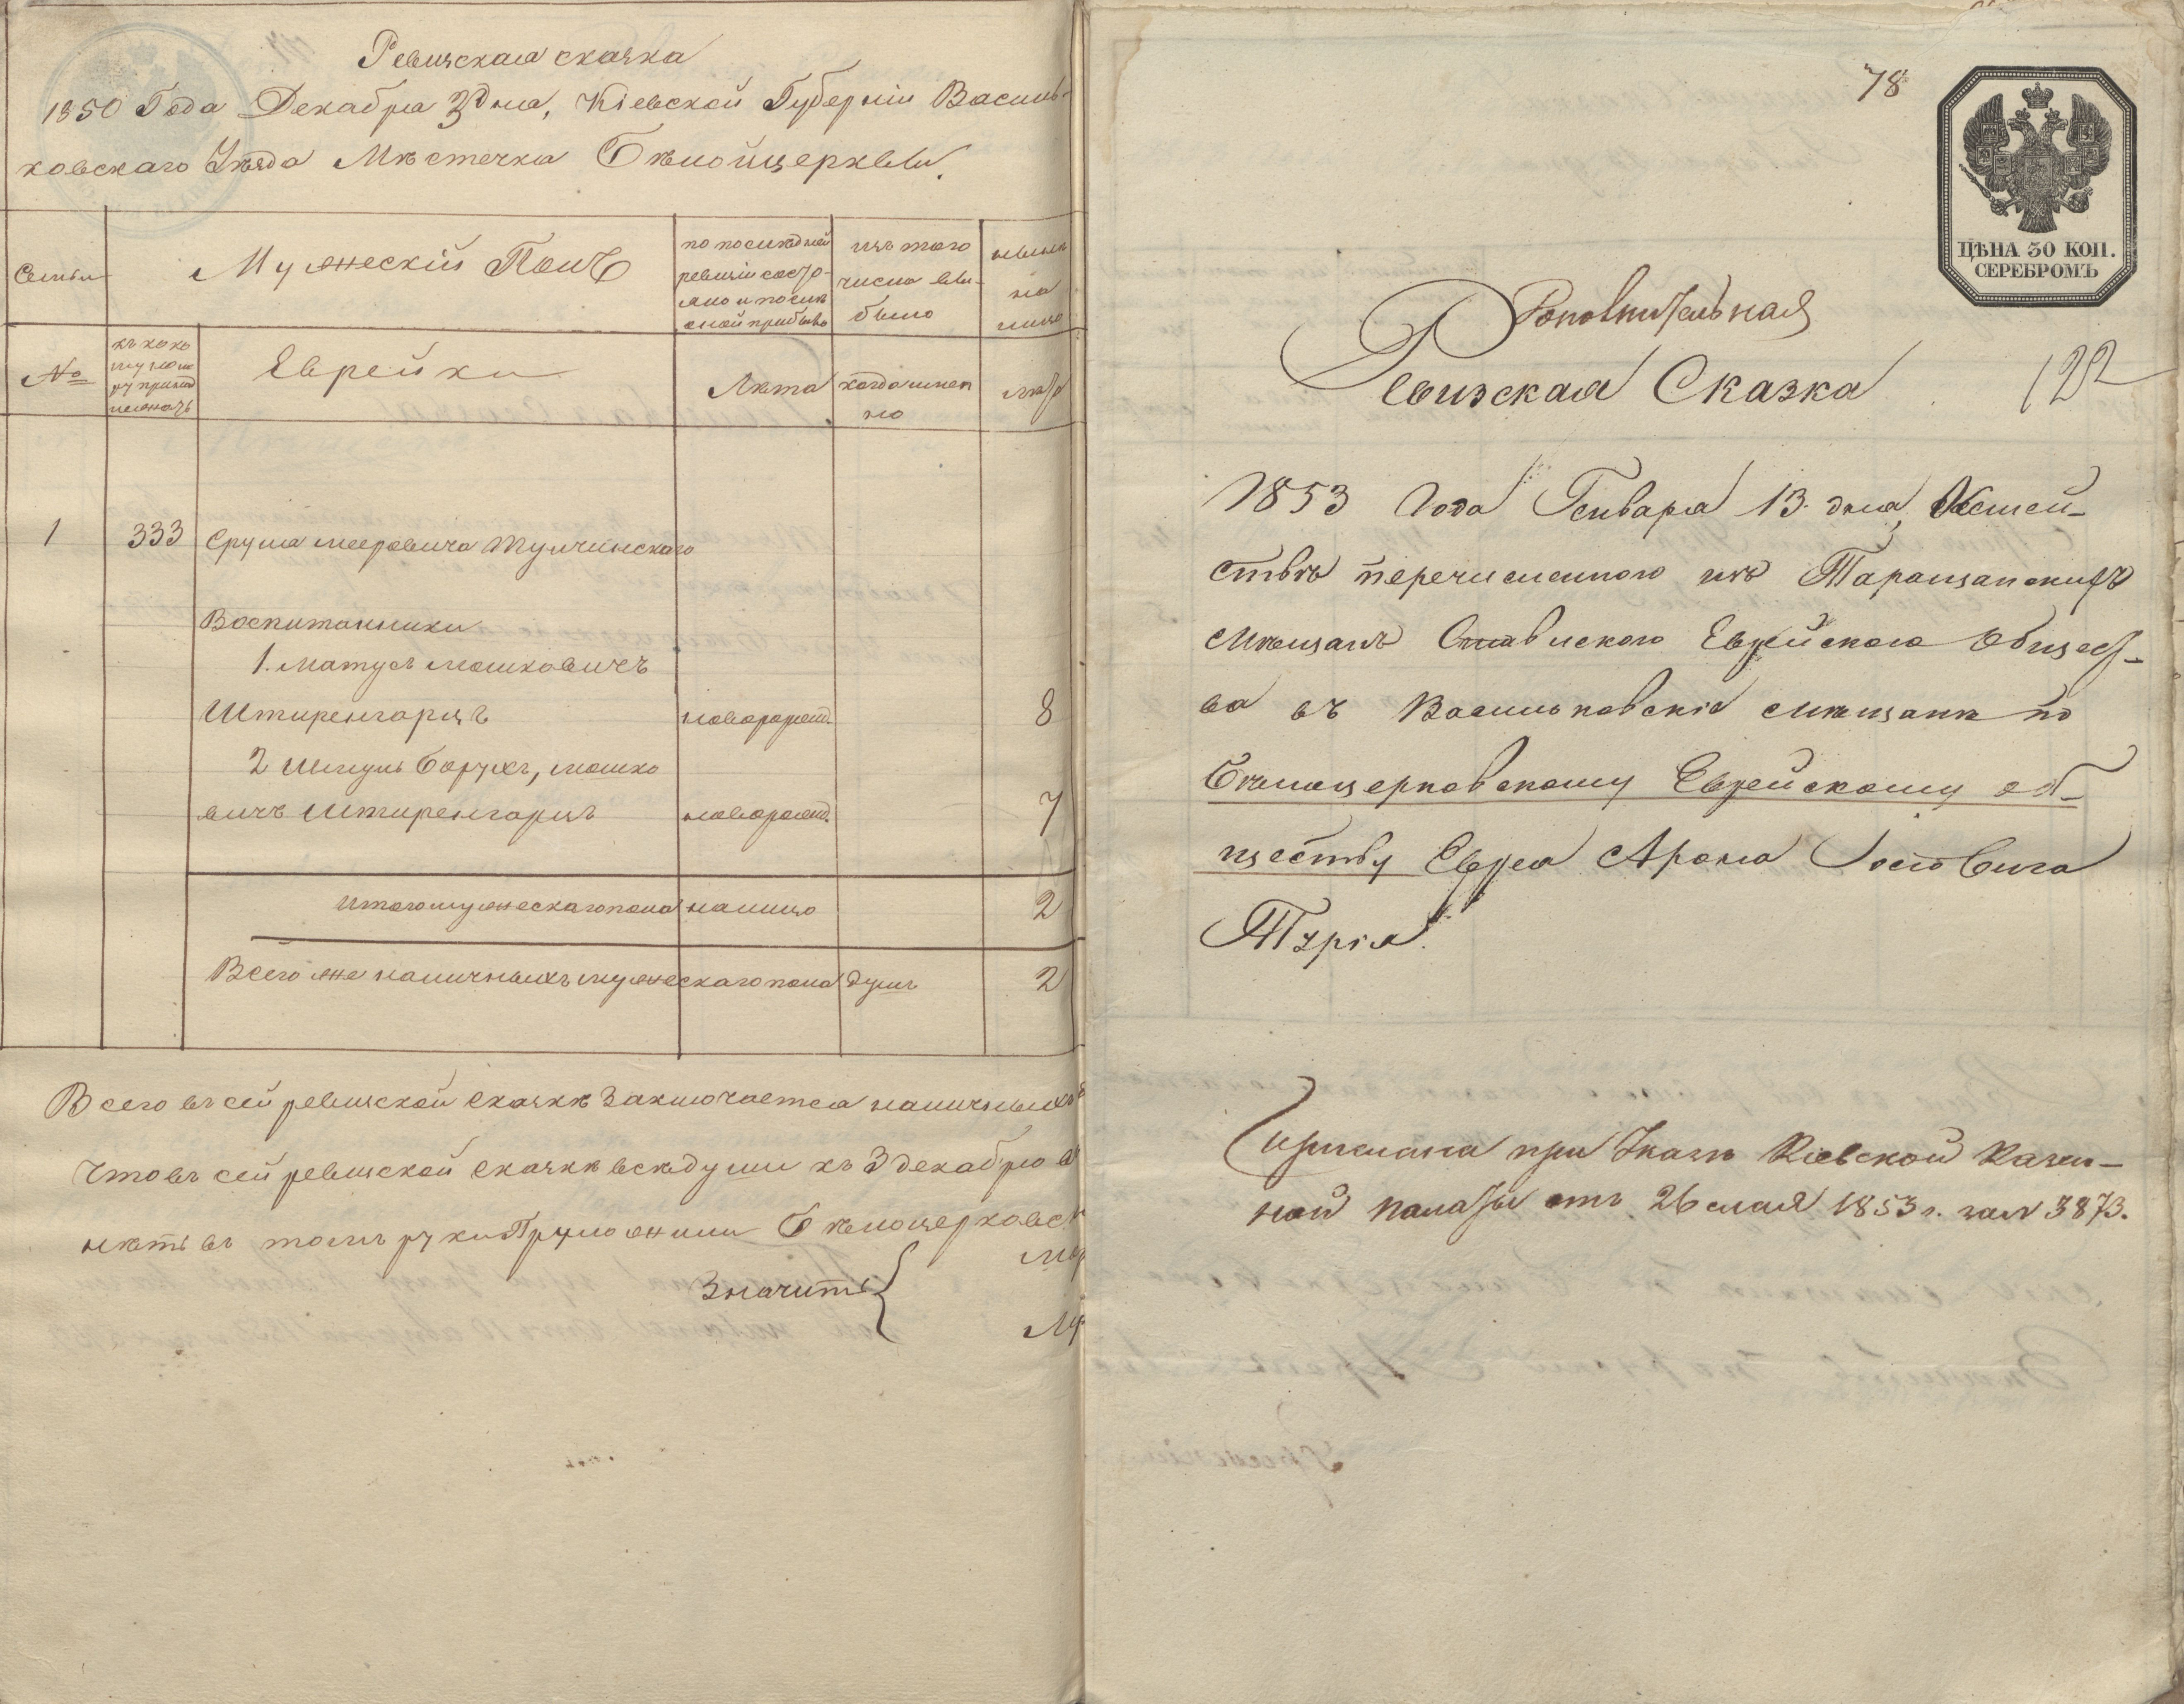 Ревизская сказка
1850 Года Декабря 3 дня, Кіевской Губерніи Василь-
ковскаго Уѣзда Мѣстечка Бѣлойцеркви.
Семьи
Мужескій Полъ
по последней
ревизіи состо-
яло и после
оной прибыло
изъ того
числа вы-
было
нынѣ
на
лицо
№
къ како
му номе
ру принад
лежатъ
Еврейки
Лѣта
когда имен
но
лѣта
1
333
Сруля Мееровича Тульчинскаго
Воспитанники
1. Матусь Мошковичъ
Штиренгарцъ
новорожд.
8
2 Шмуль Борухъ, мошко
вичъ Штиренгарцъ
новорожд.
7
Итого мужескаго пола на лицо
2
Всего же наличныхъ мужескаго пола душъ
2
Всего въ сей ревизской сказкѣ заключается наличныхъ
Что въ сей ревизской сказкѣ всѣ души къ 3 декабрю
нѣтъ въ томъ руки Приложили Бѣлоцерковск
Значитъ
78
ЦѢНА 30 КОП.
СЕРЕБРОМЪ
Дополнительная
Ревизская Сказка
122
1853 Года Генваря 13 дня, Семей-
ства перечисленного изъ Таращанскихъ
мѣщанъ Ставиского Еврейского Общест-
ва въ Васильковскіе мѣщане по
Бѣлоцерковскому Еврейскому об-
ществу Еврея Арона Иосіовича
Турія.
Прислана при Указѣ Кіевской Казен-
ной палаты отъ 26 мая 1853 г. за № 3873.